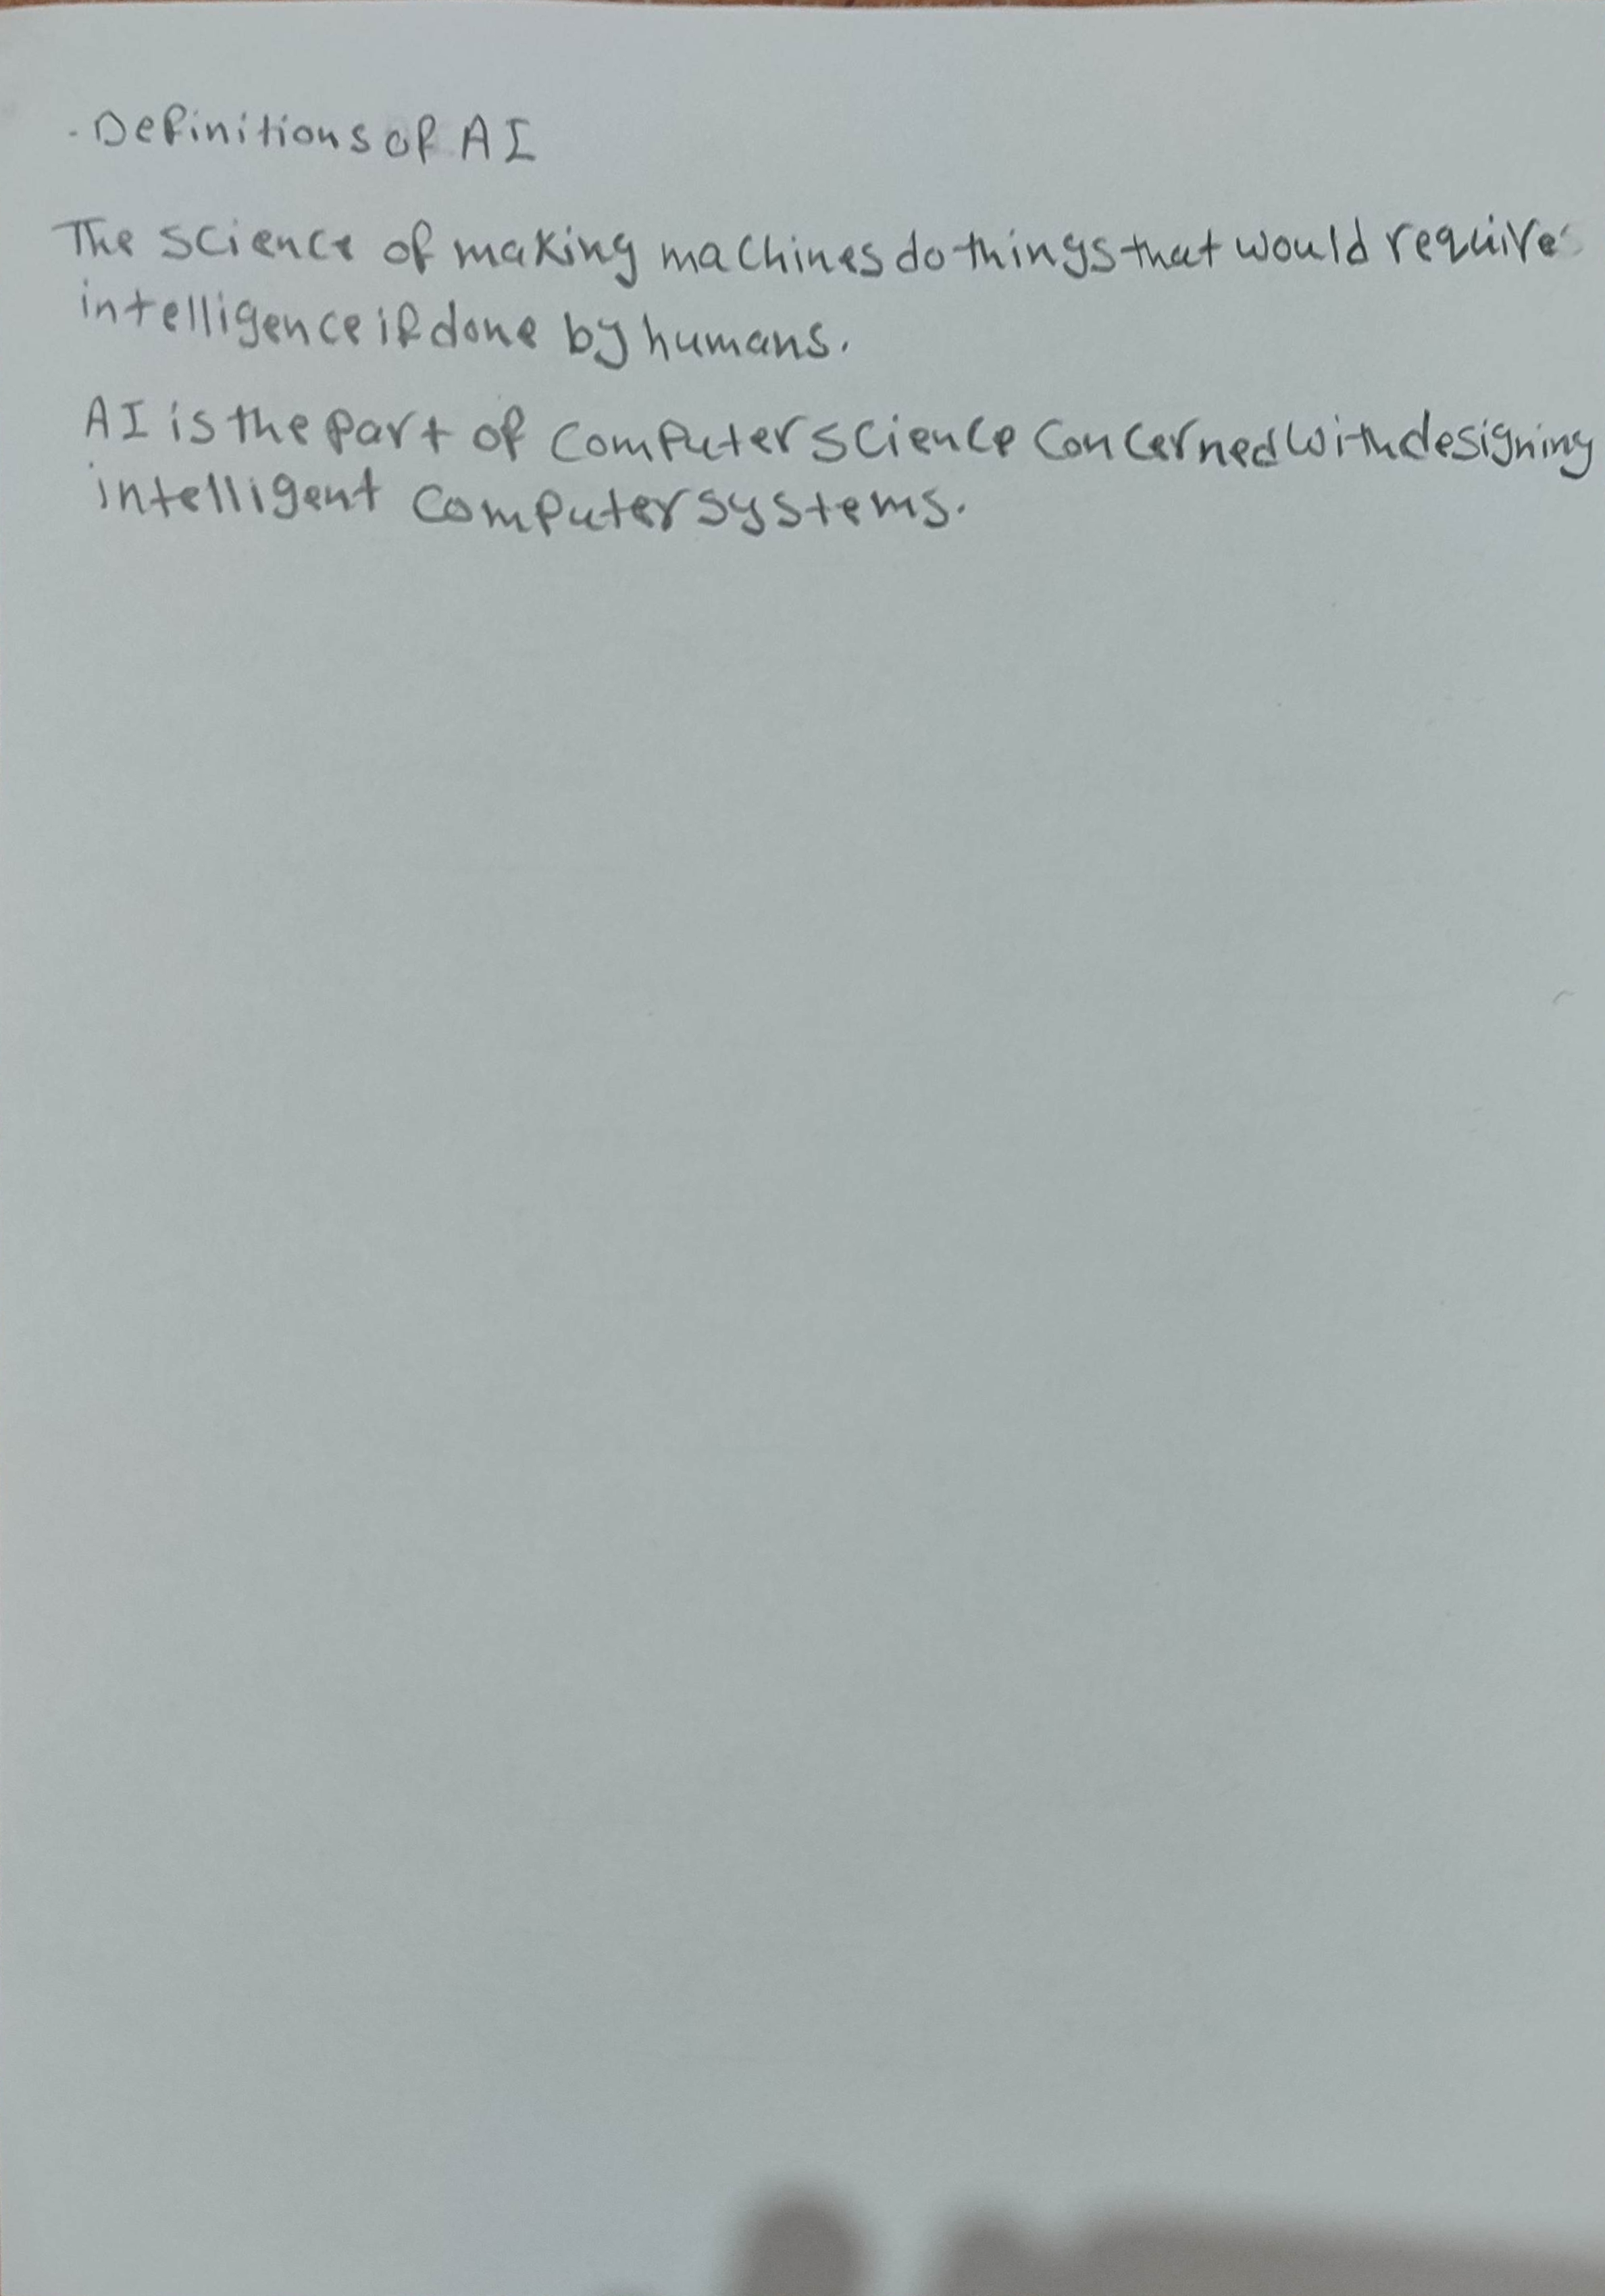 - Definitions of AI
The science of making machines do things that would require
intelligence if done by humans.
AI is the part of computer science concerned with designing
intelligent computer systems.